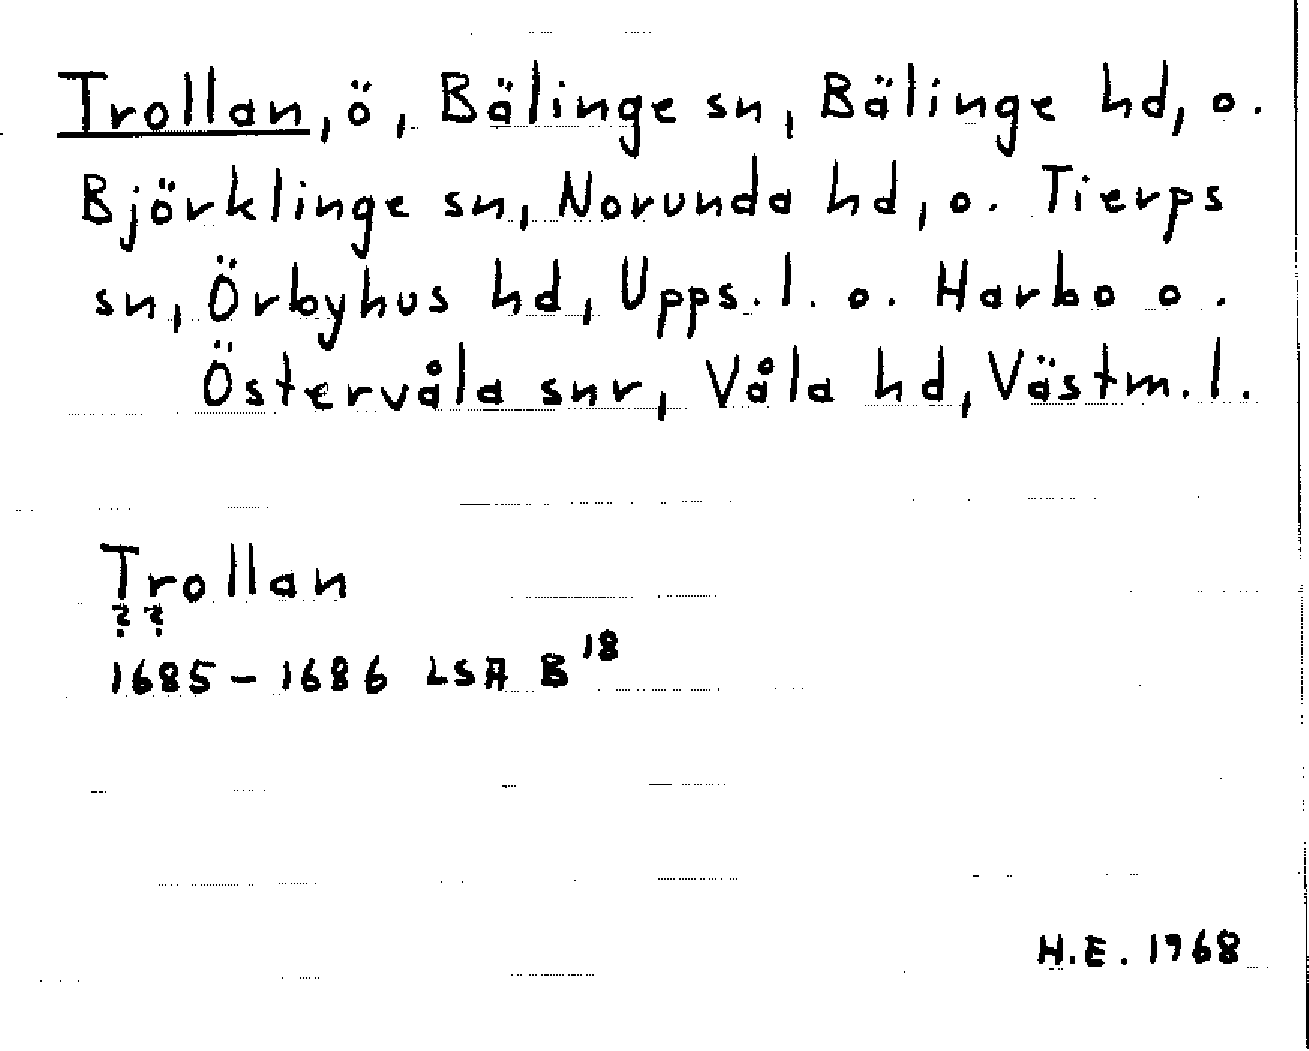 Trollan, ö, Bälinge sn, Bälinge hd, o.
Björklinge sn, Norunda hd, o. Tierps
sn, Örbyhus hd, Upps.l. o. Harbo o.
Östervåla snr, Våla hd, Västm.l.
Trollan
??
1685-1686 LSA B18
H.E. 1968